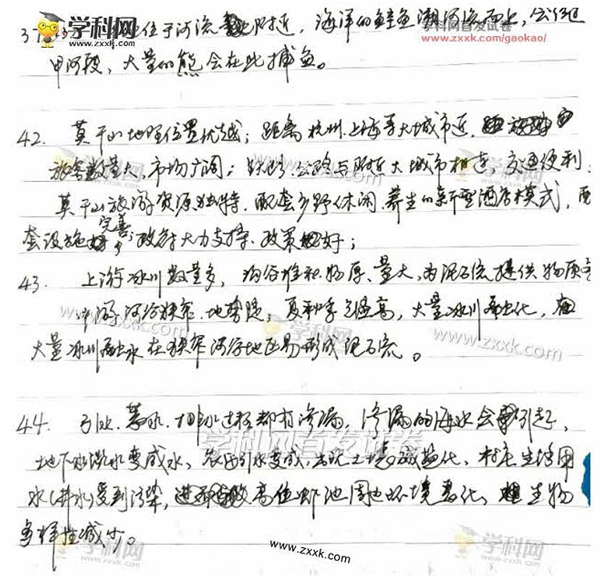 位于河流附近，海洋的鲑鱼溯河流而上，会经过
甲河段，大量的熊会在此捕鱼。
42. 莫干山地理位置优越；距离杭州、上海等大城市近，
游客数量大，市场广阔；铁路、公路与附近大城市相连，交通便利
莫干山旅游资源独特，配套乡野休闲、养生的新型酒店模式，配
套设施完善，政府大力支持，政策好；
43. 上游冰川数量多，沟谷堆积物厚、量大，为泥石流提供物质
中游河谷狭窄，地势陡，夏和季气温高，大量冰川融化，
大量冰川融水在狭窄河谷地区易形成泥石流。
44. 引水、蓄水、排水过程都有渗漏，渗漏的海水会引起
地下水淡水变成水，出现土壤盐碱化，村庄生活用
水（井水）受到污染，高位虾池周边环境恶化，生物
多样性减少。
学科网
www.zxxk.com
学科网首发试卷
www.zxxk.com/gaokao/